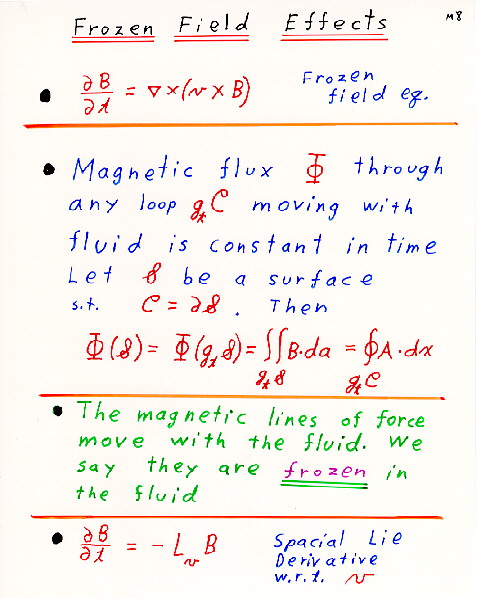 M8
Frozen Field Effects
• ∂B/∂t = ∇×(v × B) Frozen
field eq.
• Magnetic flux Φ through
any loop g_t C moving with
fluid is constant in time
Let S be a surface
s.t. C = ∂S . Then
Φ(S) = Φ(g_t S) = ∬_{g_t S} B·da = ∮_{g_t C} A·dx
• The magnetic lines of force
move with the fluid. We
say they are frozen in
the fluid
• ∂B/∂t = - L_v B Spacial Lie
Derivative
w.r.t. v